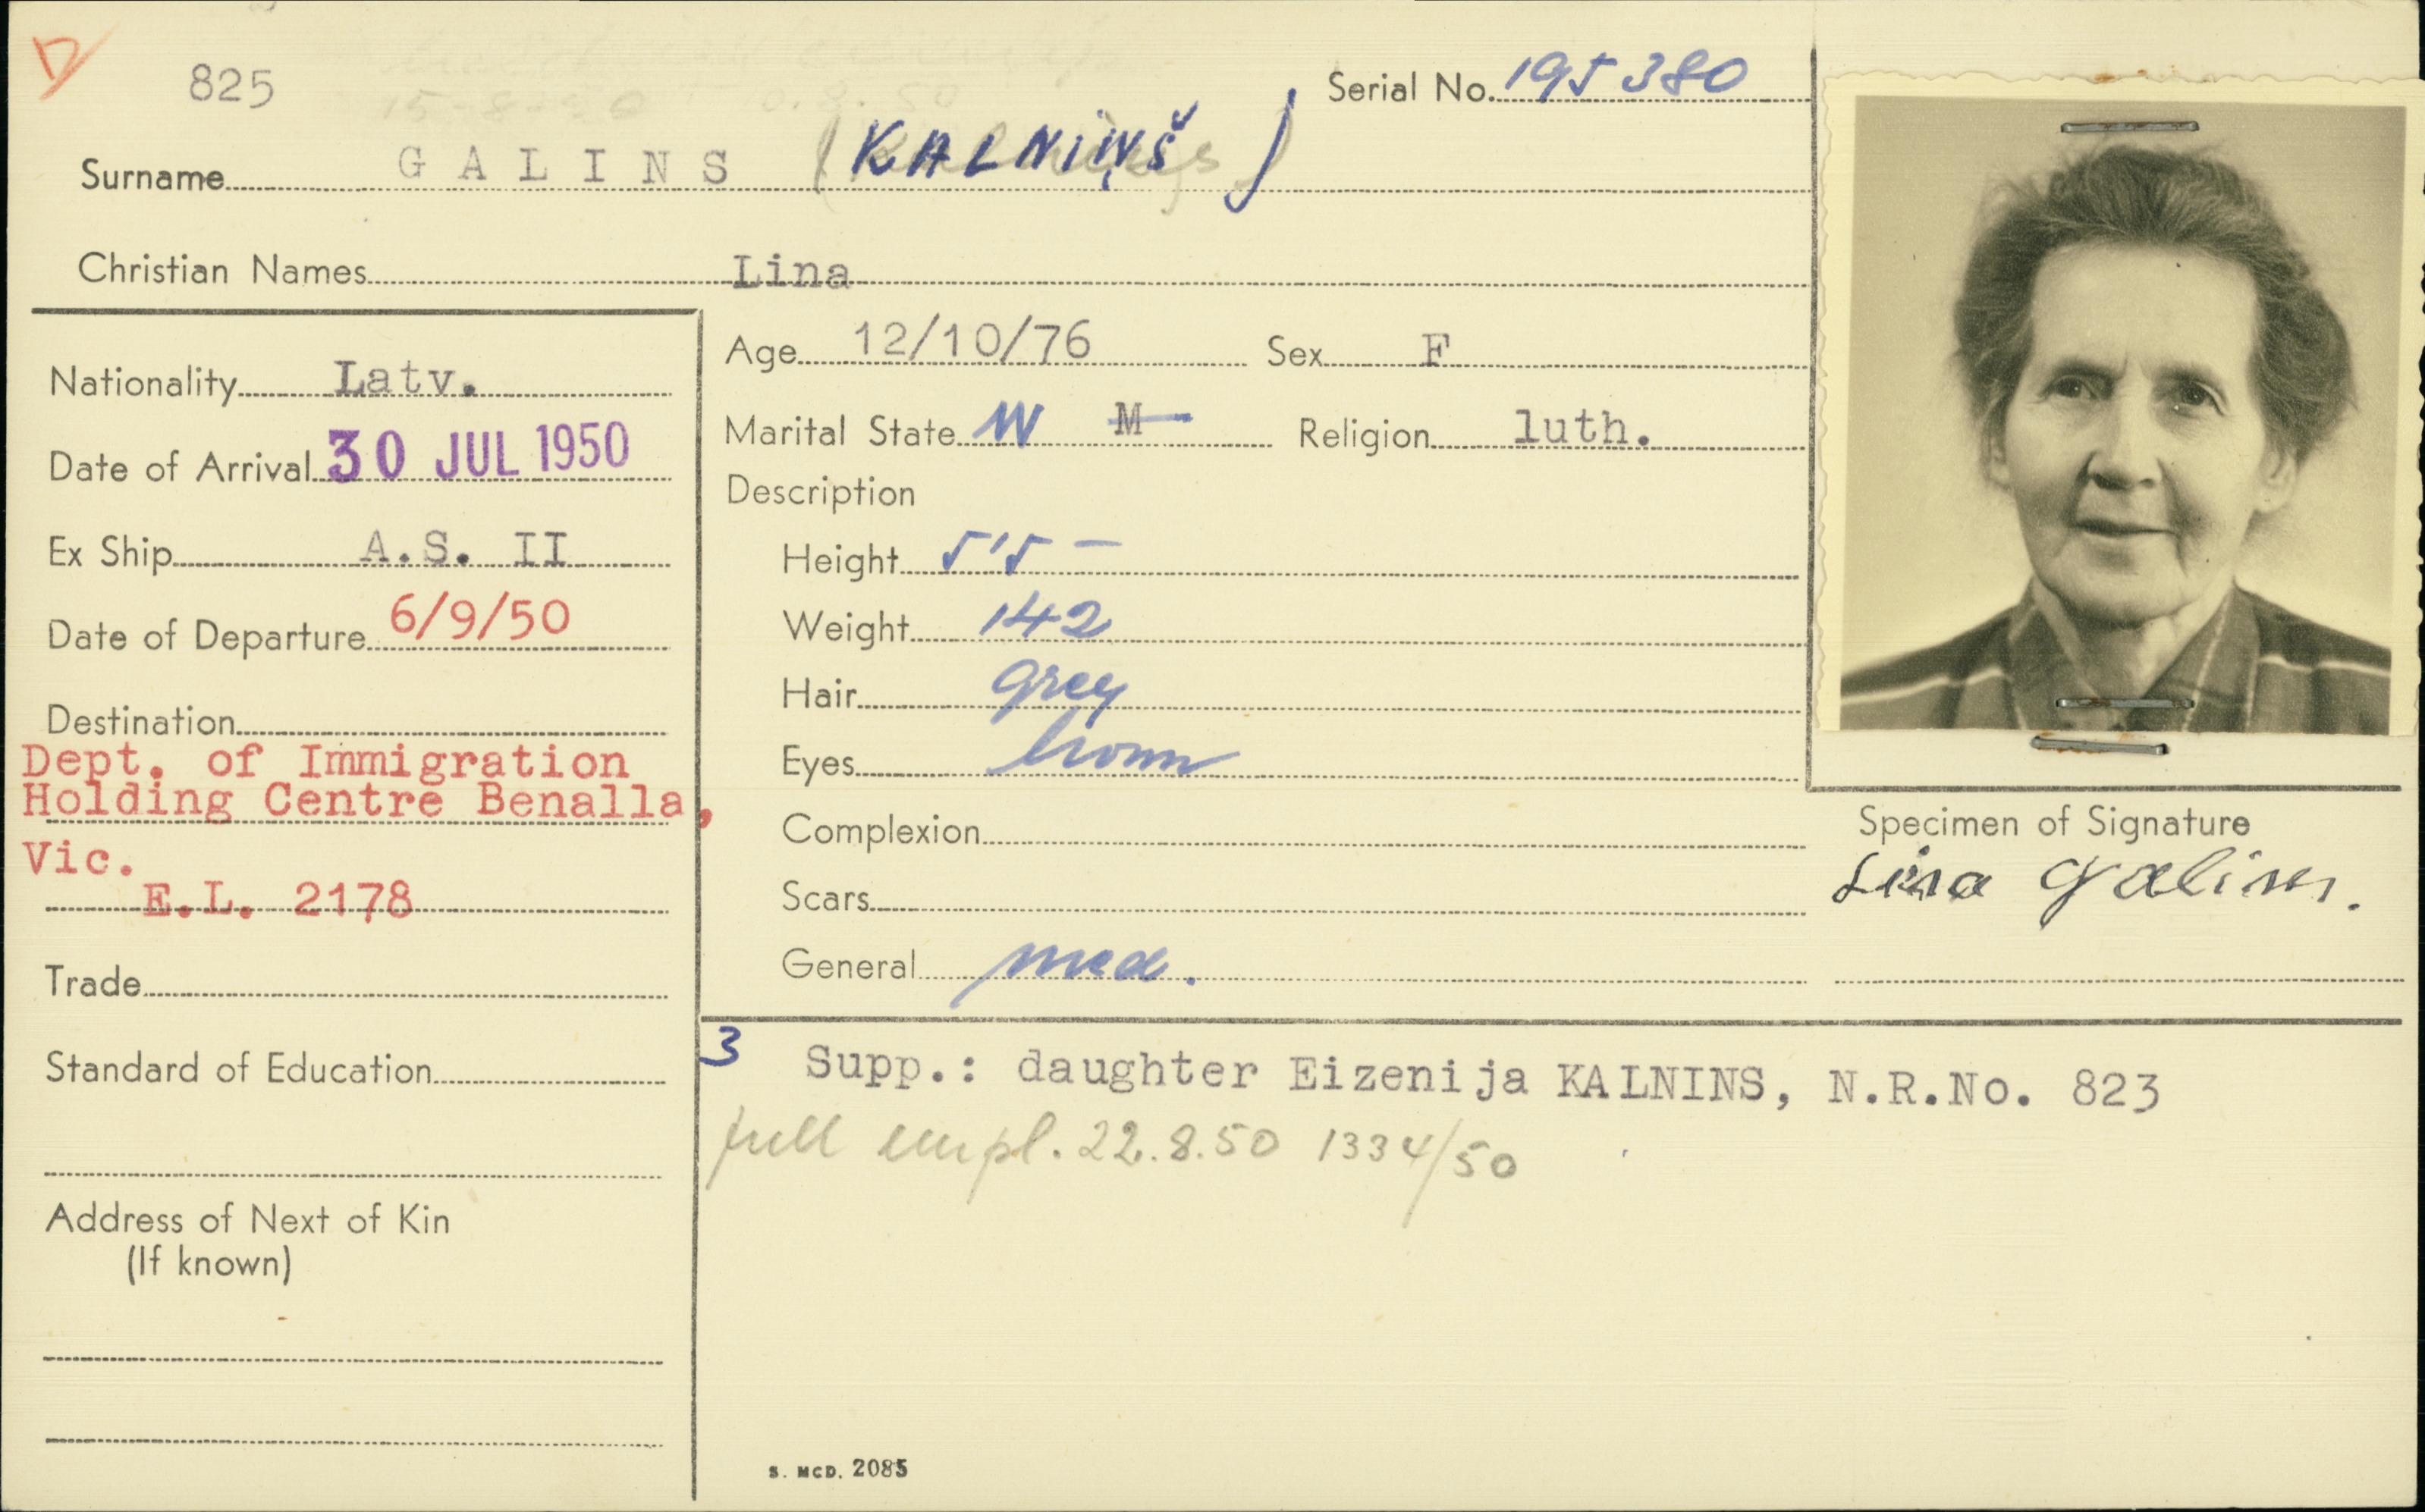 825
Serial No. 195380
Surname GALINS (KALNIŅŠ)
Christian Names Lina
Nationality Latv.
Date of Arrival 30 JUL 1950
Ex Ship A.S. II
Date of Departure 6/9/50
Destination
Dept. of Immigration
Holding Centre Benalla,
Vic.
E.L. 2178
Trade
Standard of Education
Address of Next of Kin
(If known)
Age 12/10/76 Sex F
Marital State W M Religion luth.
Description
Height 5'5 -
Weight 142
Hair grey
Eyes brown
Complexion
Scars
General med.
Specimen of Signature
Lina Galins.
3 Supp.: daughter Eizenija KALNINS, N.R.No. 823
full empl. 22.8.50 1334/50
S. MCD. 2085